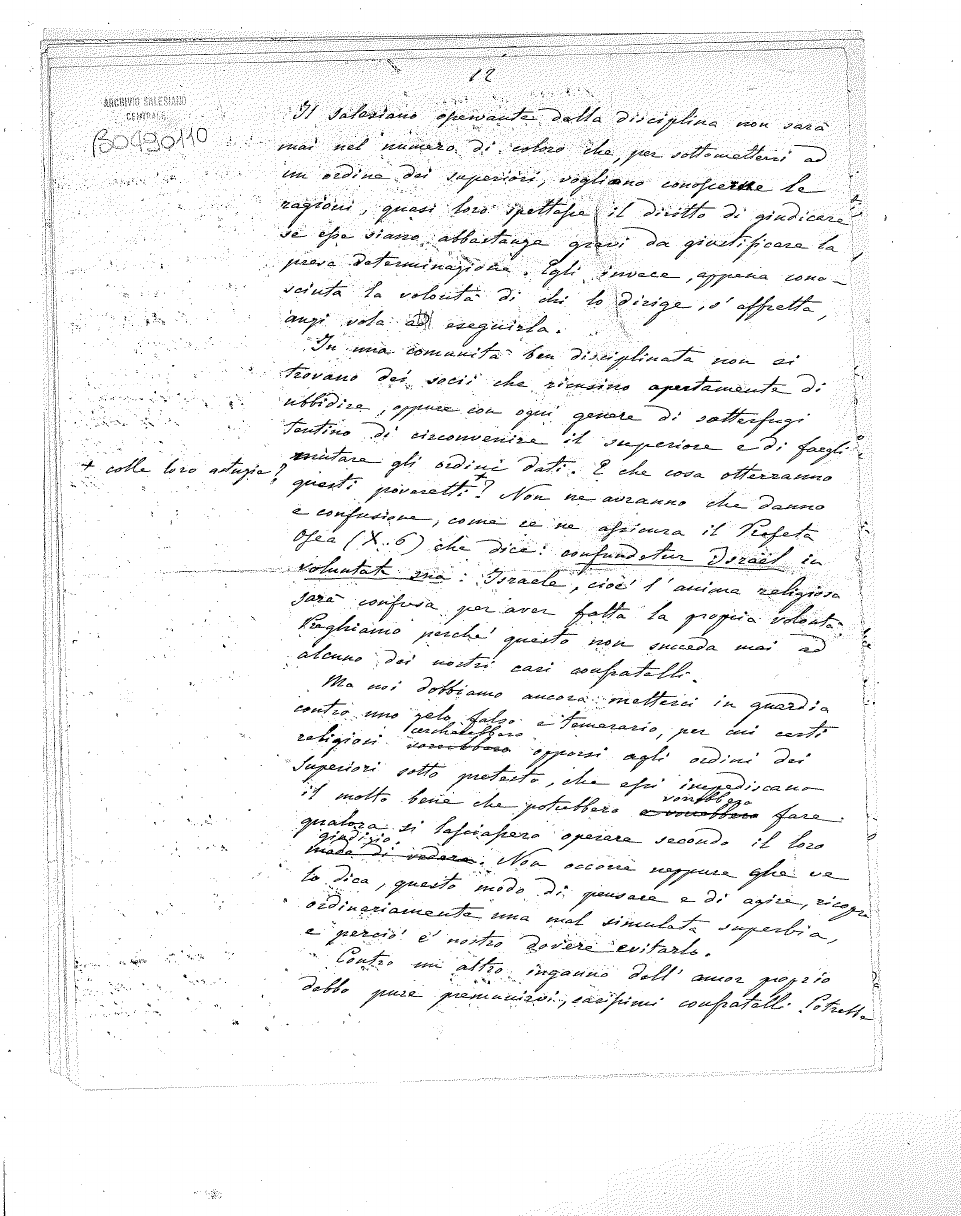 12
ARCHIVIO SALESIANO
CENTRALE
B0490110
Il salesiano operante dalla disciplina non sarà
mai nel numero di coloro che, per sottomettersi ad
un ordine dei superiori, vogliono conoscerne le
ragioni, quasi loro spettasse il diritto di giudicare
se esse siano abbastanza gravi da giustificare la
presa determinazione. Egli invece, appena cono-
sciuta la volontà di chi lo dirige, s'affretta,
anzi vola ad eseguirla.
In una comunità ben disciplinata non si
trovano dei socii che ricusino apertamente di
ubbidire, oppure con ogni genere di sotterfugi
tentino di circonvenire il superiore e di fargli
mutare gli ordini dati. E che cosa otterranno
+ colle loro astuzie?
questi poveretti +? Non ne avranno che danno
e confusione, come ce ne assicura il Profeta
Osea (X. 6) che dice: confundetur Israël in
voluntate sua: Israele, cioè l'anima religiosa
sarà confusa per aver fatta la propria volontà.
Preghiamo perchè questo non succeda mai ad
alcuno dei nostri cari confratelli.
Ma noi dobbiamo ancora metterci in guardia
contro uno zelo falso e temerario, per cui certi
cercherebbero
religiosi vorrebbero opporsi agli ordini dei
Superiori sotto pretesto, che essi impediscano
vorrebbero
il molto bene che potrebbero e vorrebbero fare
qualora si lasciassero operare secondo il loro
giudizio.
modo di vedere. Non occorre neppure che ve
lo dica, questo modo di pensare e di agire, ricopre
ordinariamente una mal simulata superbia,
e perciò è nostro dovere evitarlo.
Contro un altro inganno dell'amor proprio
debbo pure premunirvi, carissimi confratelli. Potrebbe